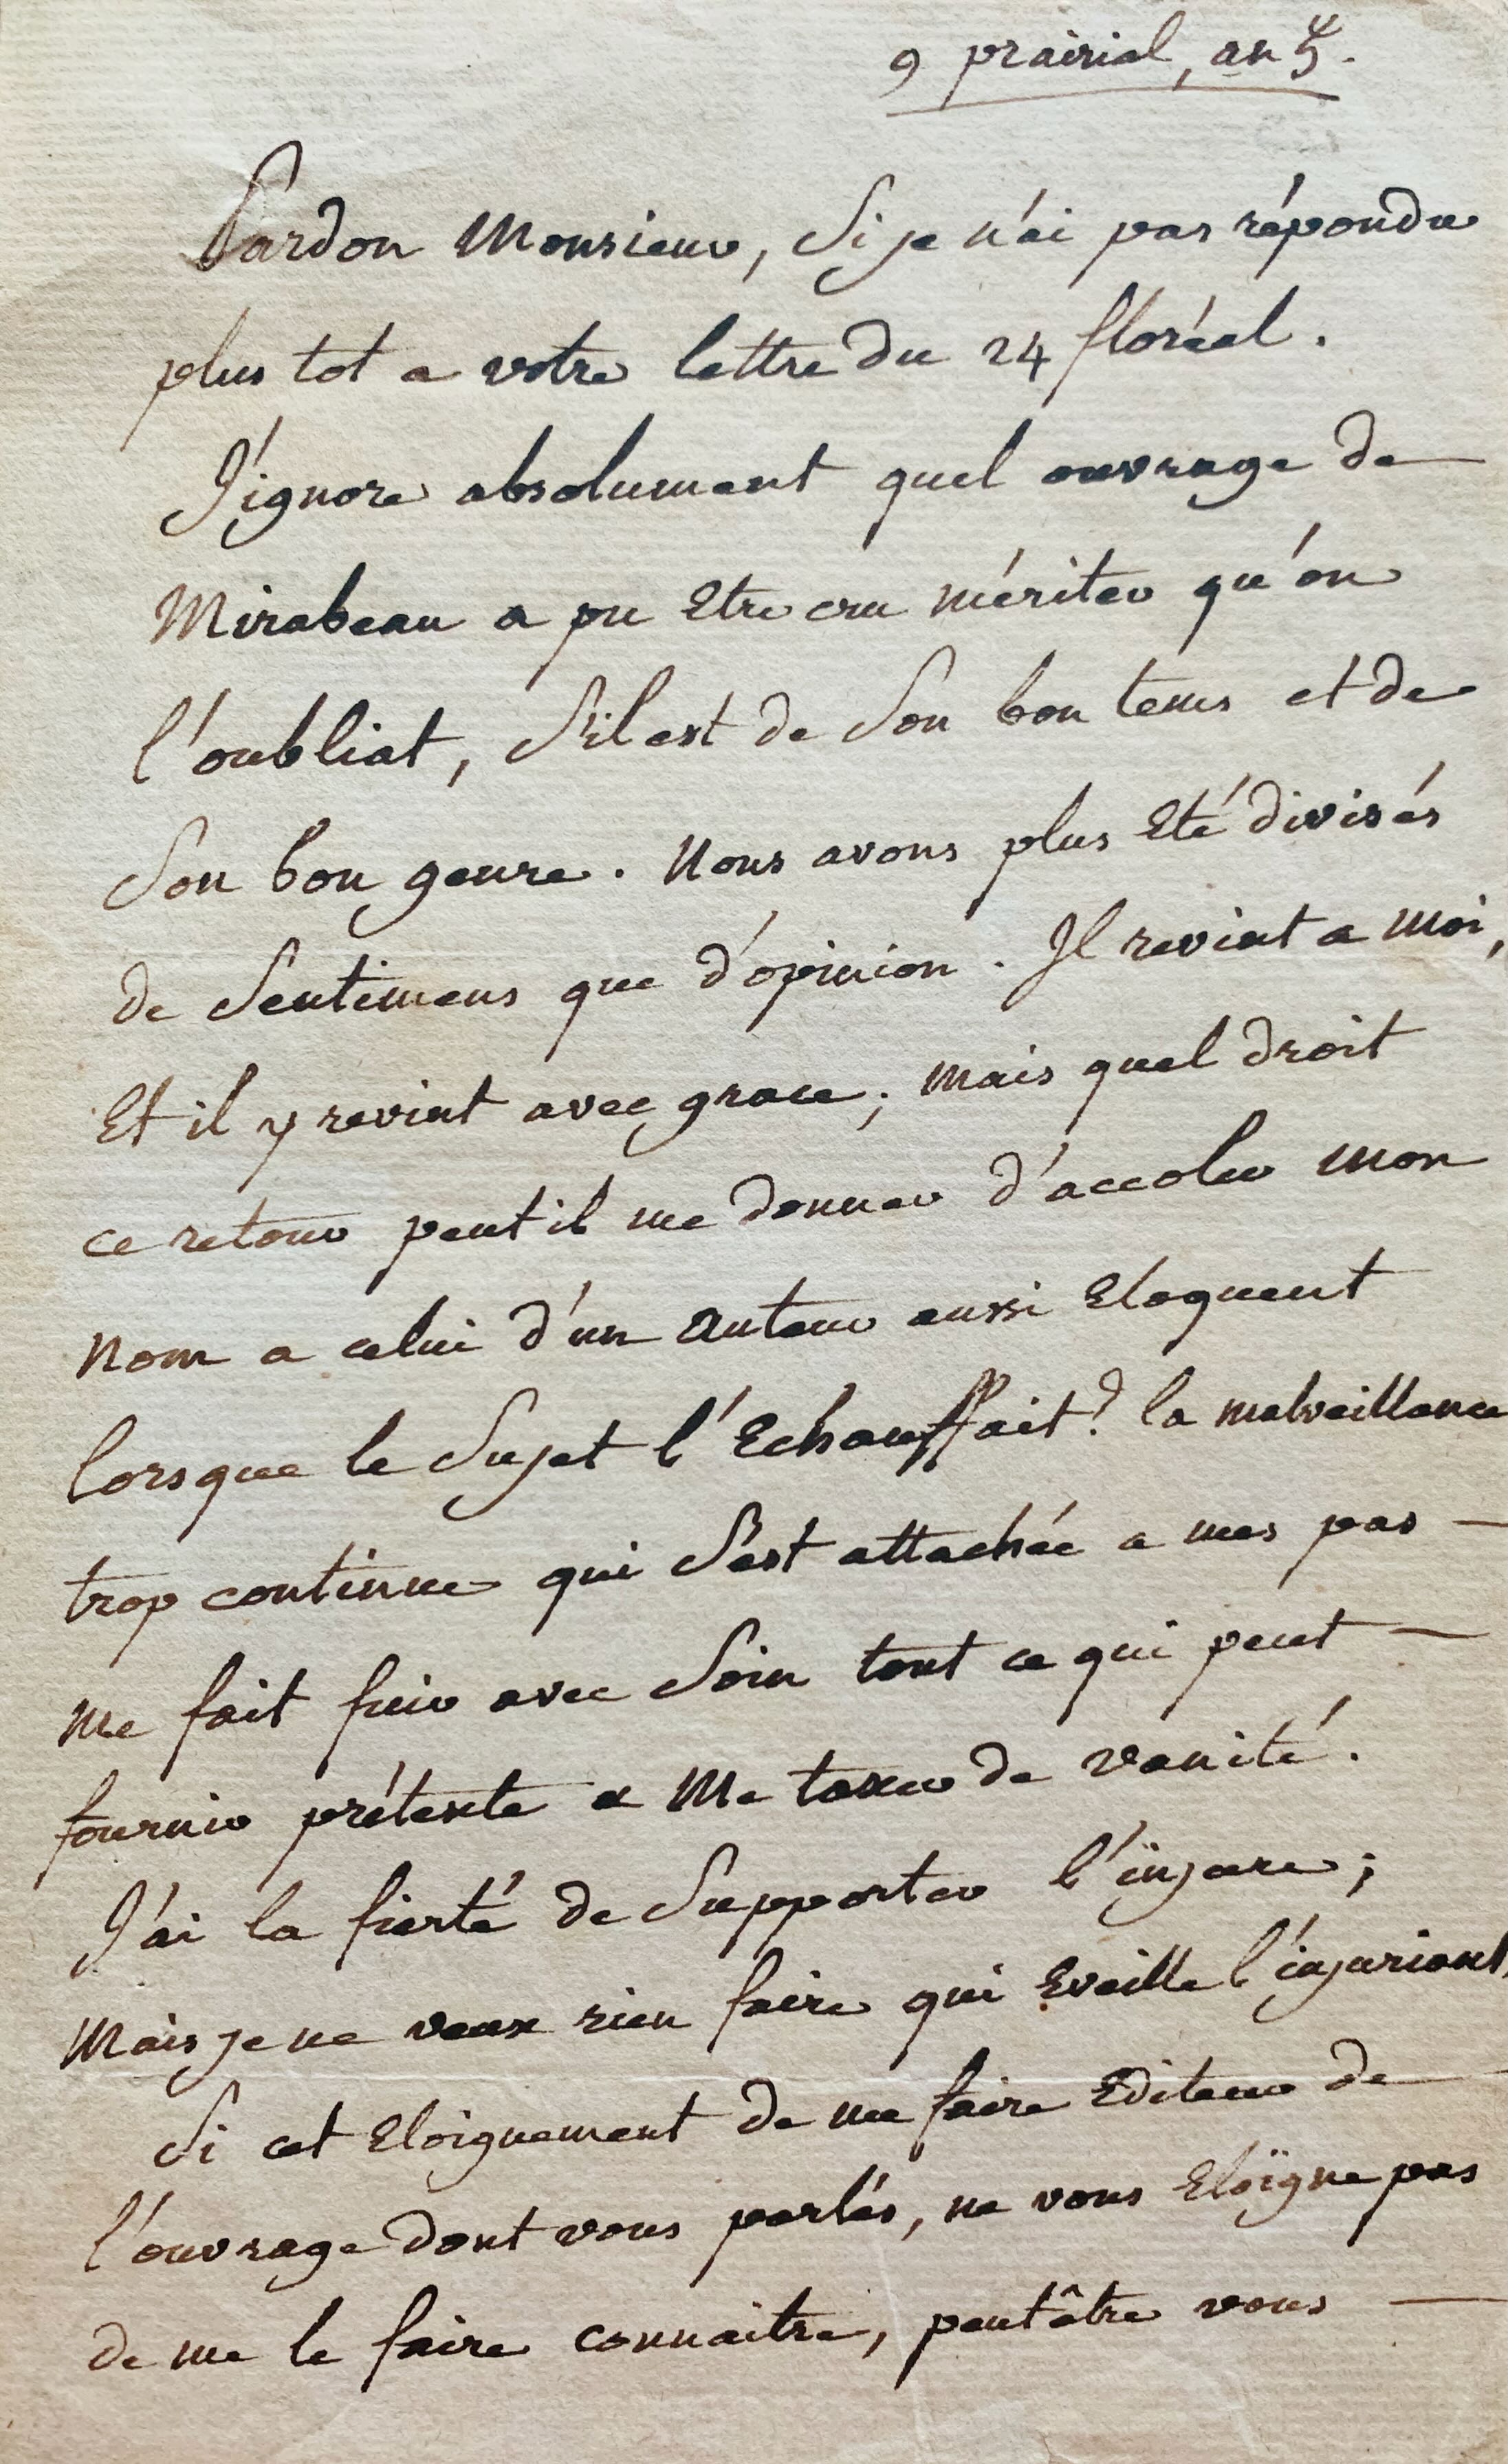 9 prairial, an 5.
Pardon Monsieur, Si je n'ai pas répondu
plus tot a votre lettre du 24 floréal.
J'ignore absolument quel ouvrage de
Mirabeau a pu Etre cru mériter qu'on
l'oubliat, S'il est de Son bon tems et de
Son bon genre. Nous avons plus Eté divisés
de Sentimens que d'opinion. Il revint a moi,
Et il y revint avec grace; mais quel droit
ce retour peut il me donner d'accoler mon
nom a celui d'un auteur aussi Eloquent
lorsque le Sujet l'Echauffait? la malveillance
trop continue qui S'est attachée a mes pas
me fait fuir avec Soin tout ce qui peut
fournir prétexte a me taxer de vanité.
J'ai la fierté de Supporter l'injure;
Mais je ne veux rien faire qui Eveille l'injuriant.
Si cet Eloignement de me faire Editeur de
l'ouvrage dont vous parlés, ne vous Eloïgne pas
de me le faire connaitre, peutêtre vous